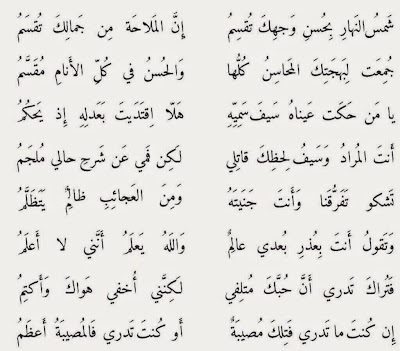 شَمسُ النَهارِ بِحُسنِ وَجهِكَ تُقسِمُ إِنَّ المَلاحَة مِن جَمالِكَ تُقسَمُ
جُمِعَت لِبَهجَتِكَ المَحاسِنُ كُلُّها وَالحُسنُ في كُلِّ الأَنامِ مُقَسَّمُ
يا مَن حَكَت عَيناهُ سَيفَ سَمِيِّهِ هَلّا اِقتَدَيتَ بَعَدلِهِ إِذ يَحكُمُ
أَنتَ المُرادُ وَسَيفُ لِحظِكَ قاتِلي لَكِن فَمي عَن شَرحِ حالي مُلجَمُ
تَشكو تَفَرُّقَنا وَأَنتَ جَنَيتَهُ وَمِنَ العَجائِبِ ظالِمٌ يَتَظَلَّمُ
وَتَقولُ أَنتَ بِعُذرِ بُعدي عالِمٌ وَاللَهُ يَعلَمُ أَنَّني لا أَعلَمُ
فَتُراكَ تَدري أَنَّ حُبَّكَ مُتلِفي لَكِنَّني أُخفي هَواكَ وَأَكتُمُ
إِن كُنتَ ما تَدري فَتِلكَ مُصيبَةٌ أَو كُنتَ تَدري فَالمُصيبَةُ أَعظَمُ